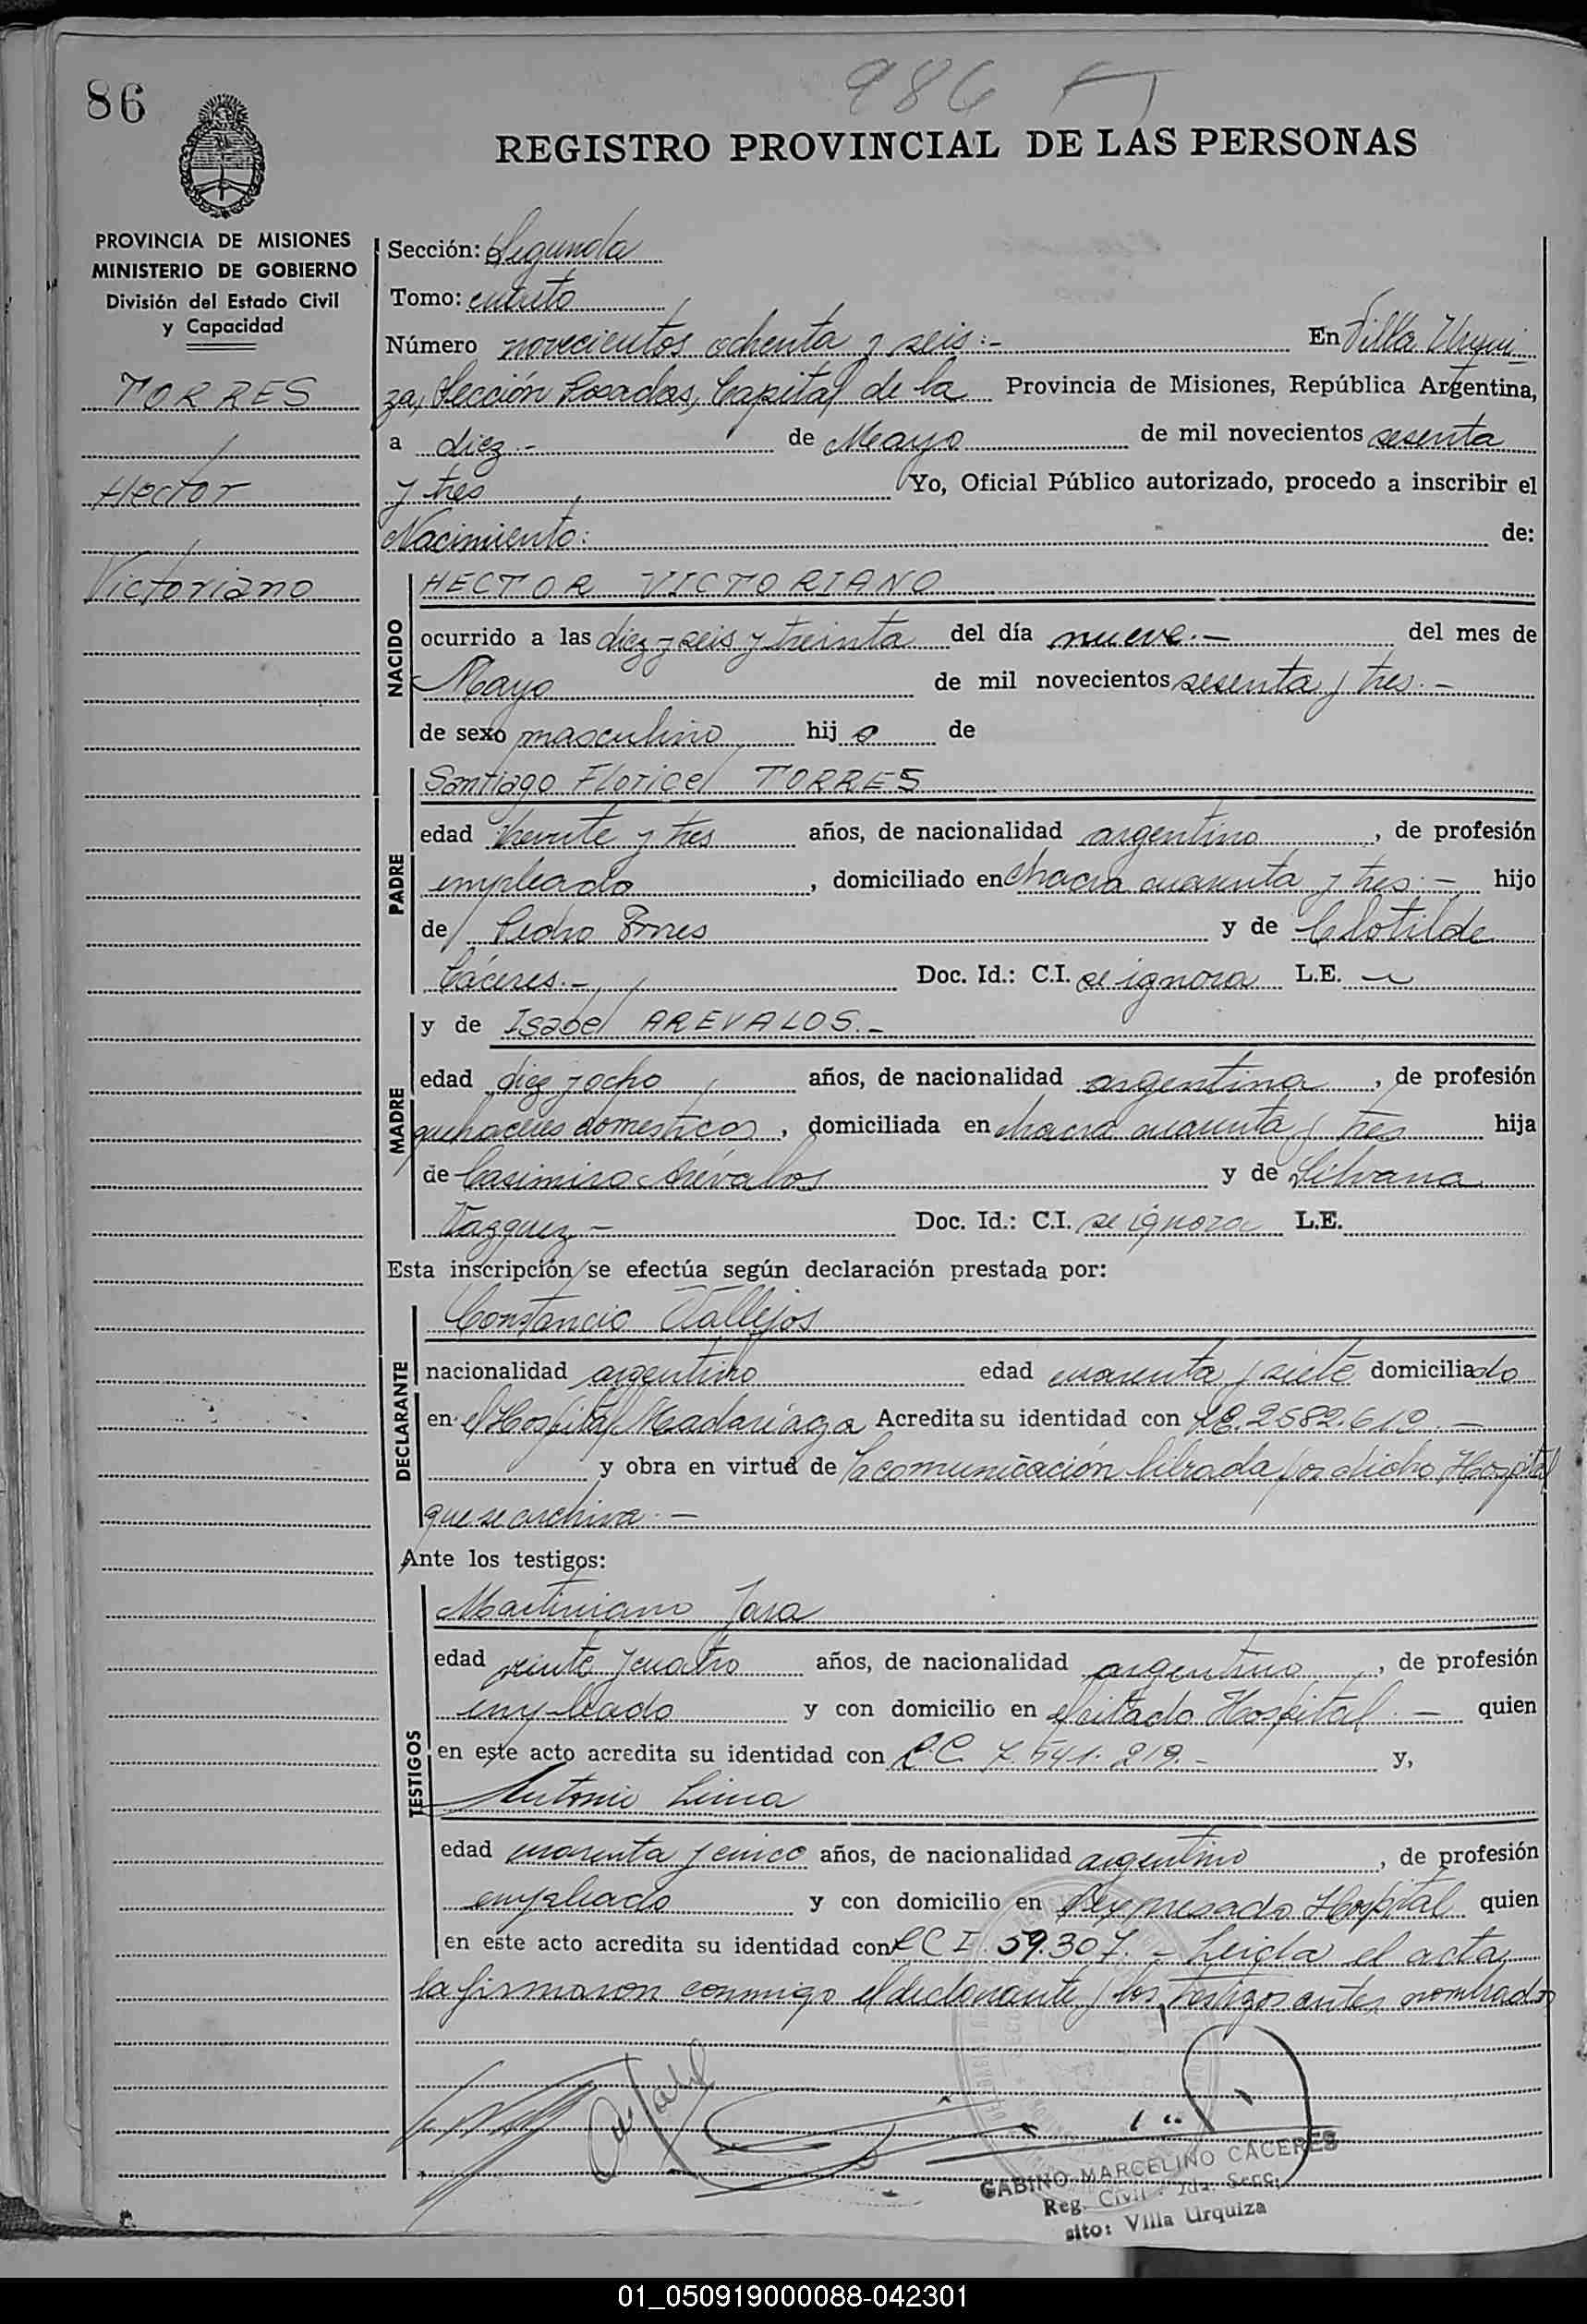 86
986
REGISTRO PROVINCIAL DE LAS PERSONAS
PROVINCIA DE MISIONES
MINISTERIO DE GOBIERNO
División del Estado Civil
y Capacidad
TORRES
Hector
Victoriano
Sección: Segunda
Tomo: cuarto
Número novecientos ochenta y seis:- En Villa Urqui-
za, Sección Posadas, Capital de la Provincia de Misiones, República Argentina,
a diez.- de Mayo de mil novecientos sesenta
y tres Yo, Oficial Público autorizado, procedo a inscribir el
Nacimiento: de:
NACIDO
HECTOR VICTORIANO
ocurrido a las diez y seis y treinta del día nueve.- del mes de
Mayo de mil novecientos sesenta y tres.-
de sexo masculino hijo de
PADRE
Santiago Floricel TORRES
edad veinte y tres años, de nacionalidad argentino, de profesión
empleado, domiciliado en chacra cuarenta y tres.- hijo
de Pedro Torres y de Clotilde
Cáceres.- Doc. Id.: C.I. se ignora L.E.
MADRE
y de Isabel AREVALOS.-
edad diez y ocho años, de nacionalidad argentina, de profesión
quehaceres domesticos, domiciliada en chacra cuarenta y tres hija
de Casimiro Arévalos y de Silvana
Vazquez.- Doc. Id.: C.I. se ignora L.E.
Esta inscripción se efectúa según declaración prestada por:
DECLARANTE
Constancio Vallejos
nacionalidad argentino edad cuarenta y siete domiciliado
en el Hospital Madariaga Acredita su identidad con 2582.612.-
y obra en virtud de la comunicación librada por dicho Hospital
que se archiva.-
Ante los testigos:
TESTIGOS
Martiniano Jara
edad veinte y cuatro años, de nacionalidad argentino, de profesión
empleado y con domicilio en el citado Hospital.- quien
en este acto acredita su identidad con 7.541.219.- y,
Antonio Lima
edad cuarenta y cinco años, de nacionalidad argentino, de profesión
empleado y con domicilio en el expresado Hospital quien
en este acto acredita su identidad con C I. 59.307.- Leida el acta
la firmaron conmigo el declarante y los testigos antes nombrados
GABINO MARCELINO CACERES
Reg. Civil 2da. Secc.
sito: Villa Urquiza
01_050919000088-042301